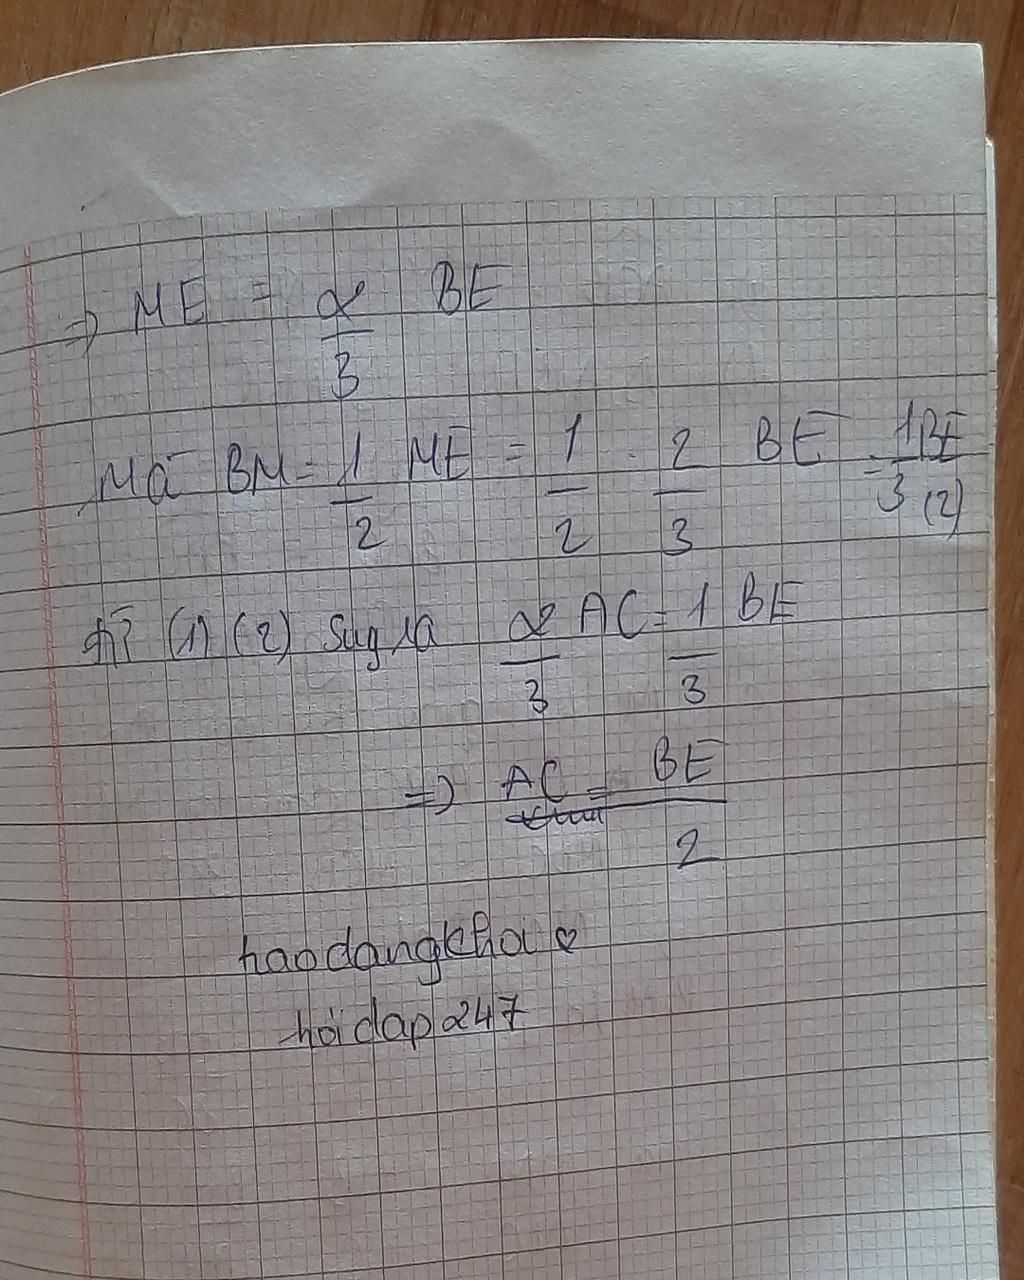 => ME = 2/3 BE
Mà BM = 1/2 ME = 1/2 . 2/3 BE = 1/3 BE (2)
từ (1) (2) suy ra 2/3 AC = 1/3 BE
=> AC = BE/2
haodangkhoi ♡
hoidap247